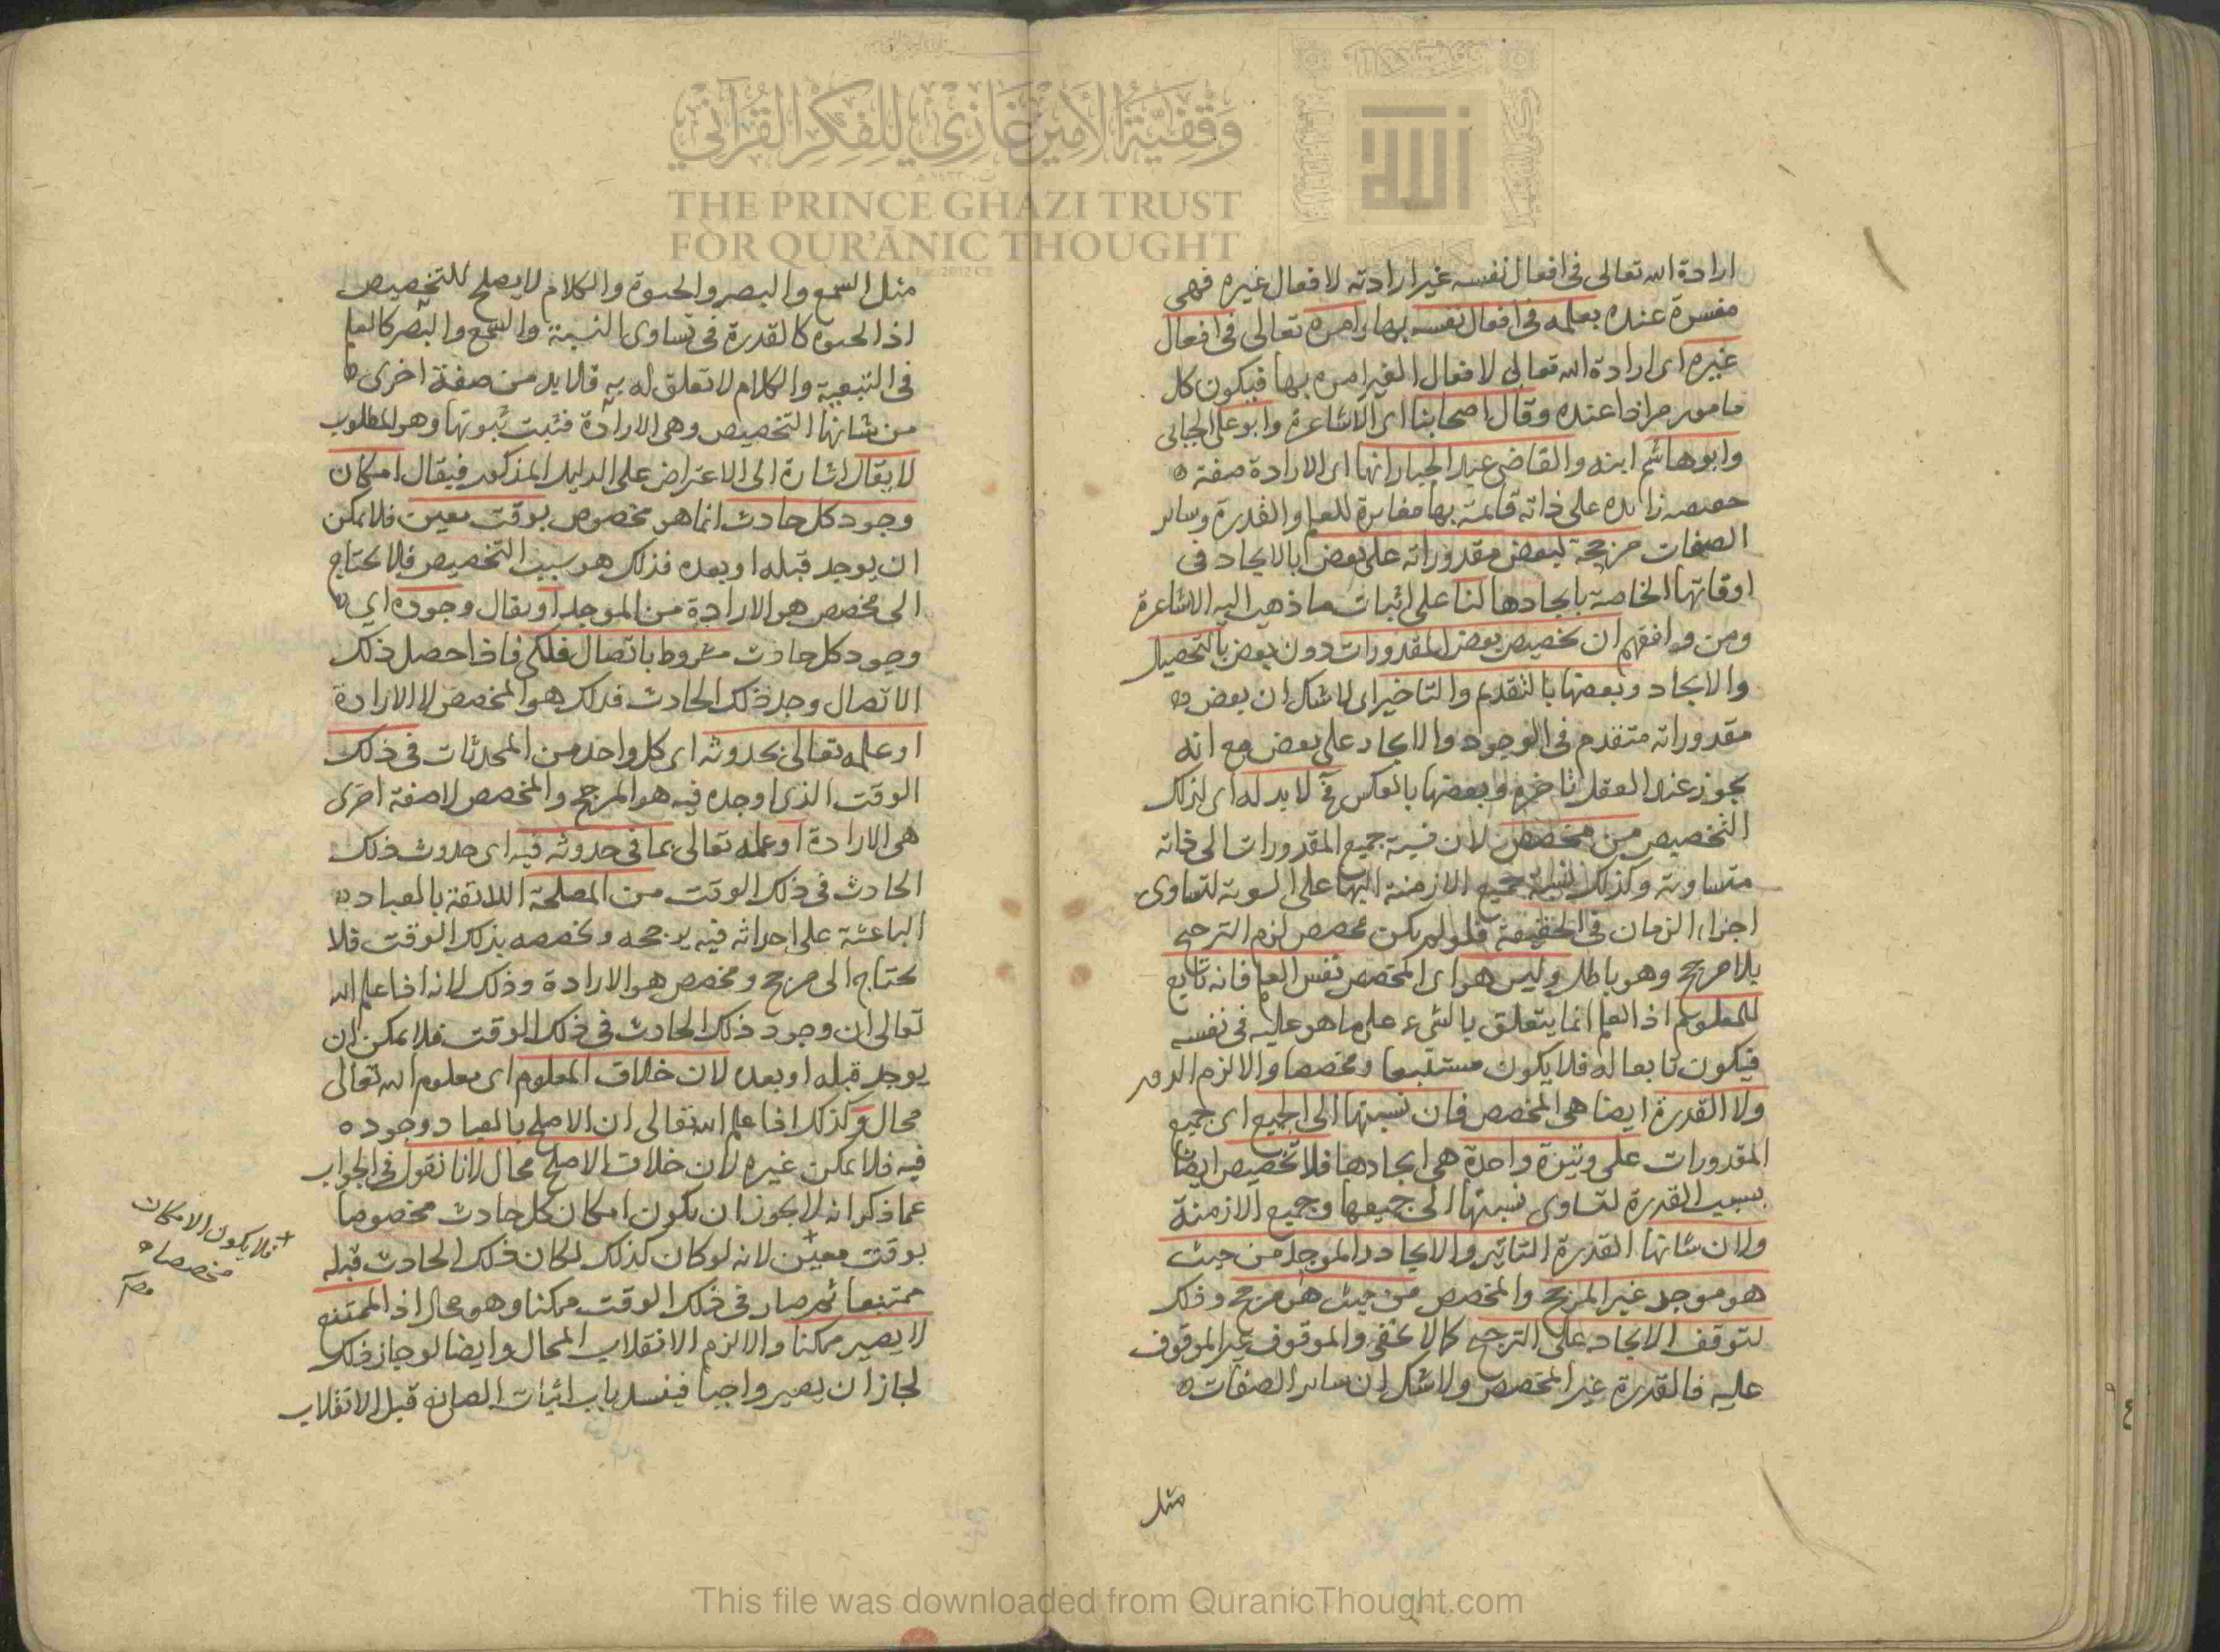 وقفية الأمير غازي للفكر القرآني
THE PRINCE GHAZI TRUST
FOR QUR'ĀNIC THOUGHT
ارادة الله تعالى فى افعال نفسه غير ارادته لافعال غيره فهى
مفسرة عنده بعلمه فى افعال نفسه بها وامره تعالى فى افعال
غيره اى ارادة الله تعالى لافعال الغير امره بها فيكون كل
مامور مرادا عنده وقال اصحابنا اى الاشاعرة وابو على الجبائى
وابو هاشم ابنه والقاضى عبد الجبار انها اى الارادة صفة
حقيقيه زايده على ذاته قايمة بها مغايرة للعلم والقدرة وساير
الصفات مرجحة لبعض مقدوراته على بعض بالايجاد فى
اوقاتها الخاصة بايجادها لنا على اثبات ما ذهب اليه الاشاعرة
ومن وافقهم ان تخصيص بعض المقدورات دون بعض بالتحصيل
والايجاد وبعضها بالتقديم والتاخير اى لا شك ان بعض
مقدوراته متقدم فى الوجود والايجاد على بعض مع انه
يجوز عند العقل تاخره وبعضها بالعكس فح لا بد له اى لذلك
التخصيص من مخصص لان نسبة جميع المقدورات الى ذاته
متساوية وكذلك نسبة جميع الازمنة اليها على السوية لتساوى
اجزاء الزمان فى الحقيقة فلو لم يكن مخصص لزم الترجيح
بلا مرجح وهو باطل وليس هو اى المخصص نفس العلم فانه تابع
للمعلوم اذ العلم انما يتعلق بالشىء على ما هو عليه فى نفسه
فيكون تابعا له فلا يكون مستتبعا ومخصصا والا لزم الدور
ولا القدرة ايضا هى المخصص فان نسبتها الى الجميع اى جميع
المقدورات على وتيرة واحدة هى ايجادها فلا تخصيص ايضا
بسبب القدرة لتساوى نسبتها الى جميعها وجميع الازمنة
ولان شانها القدرة التاثير والايجاد والموجد من حيث
هو موجد غير المرجح والمخصص من حيث هو مرجح وذلك
لتوقف الايجاد على الترجيح كما لا يخفى والموقوف غير الموقوف
عليه فالقدرة غير المخصص ولا شك ان ساير الصفات
مثل
مثل السمع والبصر والحيوة والكلام لا يصلح للتخصيص
اذ الحيوه كالقدرة فى تساوى النسبة والسمع والبصر كالعلم
فى التبعية والكلام لا تعلق له به فلا بد من صفة اخرى
من شانها التخصيص وهى الارادة فثبت ثبوتها وهو المطلوب
لا يقال اشارة الى الاعتراض على الدليل المذكور فيقال امكان
وجود كل حادث انما هو مخصوص بوقت معين فلا يمكن
ان يوجد قبله او بعده فذلك هو سبب التخصيص فلا يحتاج
الى مخصص هو الارادة من الموجد او يقال وجوده اى
وجود كل حادث مشروط باتصال فلكى فاذا حصل ذلك
الاتصال وجد ذلك الحادث فذلك هو المخصص لا الارادة
او علمه تعالى بحدوثه اى كل واحد من المحدثات فى ذلك
الوقت الذى اوجده فيه هو المرجح والمخصص لا صفة اخرى
هى الارادة او علمه تعالى بما فى حدوثه فيه اى حدوث ذلك
الحادث فى ذلك الوقت من المصلحة اللائقة بالعباد
الباعثة على احداثه فيه يرجحه ويخصصه بذلك الوقت فلا
يحتاج الى مرجح ومخصص هو الارادة وذلك لانه اذا علم الله
تعالى ان وجود ذلك الحادث فى ذلك الوقت فلا يمكن ان
يوجد قبله او بعده لان خلاف المعلوم اى معلوم الله تعالى
محال وكذلك اذا علم الله تعالى ان الاصلح بالعباد وجوده
فيه فلا يمكن غيره لان خلاف الاصلح محال لانا نقول فى الجواب
عما ذكر انه لا يجوز ان يكون امكان كل حادث مخصوصا
بوقت معين لانه لو كان كذلك لكان ذلك الحادث قبله
ممتنعا ثم صار فى ذلك الوقت ممكنا وهو محال اذ الممتنع
لا يصير ممكنا والا لزم الانقلاب المحال وايضا لو جاز ذلك
لجاز ان يصير واجبا فينسد باب اثبات الصانع قبل الانقلاب
فلا يكون الامكان
مخصصا
صح
This file was downloaded from QuranicThought.com